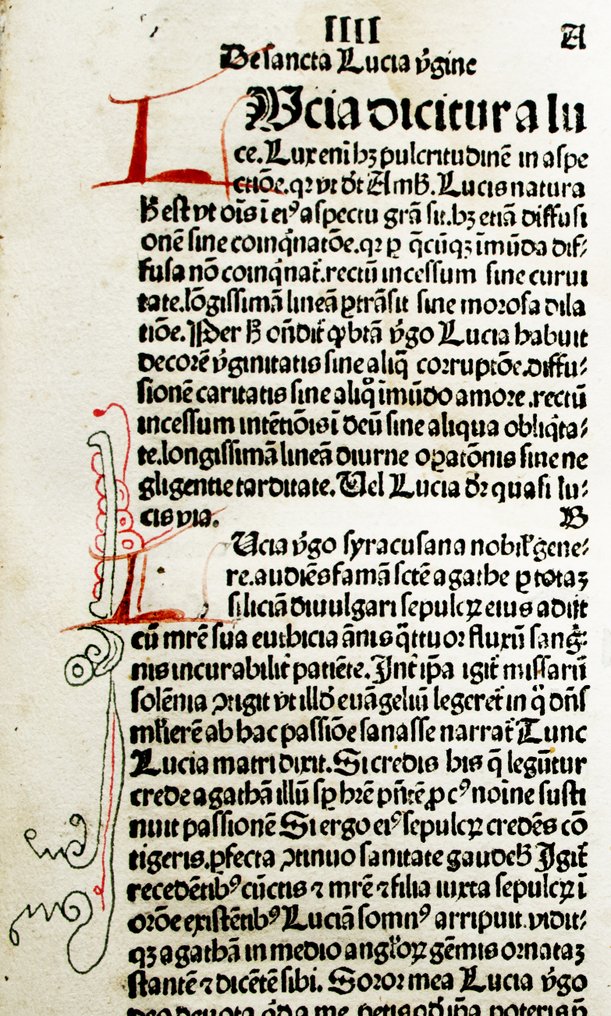 IIII
A
De sancta Lucia v̄gine
LUcia dicitur a lu
ce. Lux eni hꝫ pulcritudinē in aspe
ctiōe. qꝛ vt dt̄ Amb. Lucis natura
h̄ est vt oīs ī eiꝰ aspectu grā sit. hꝫ etiā diffusi
onē sine coinq̄natōe. qꝛ ꝑ q̄cūqꝫ īmūda dif⸗
fusa nō coinq̄nat᷑. rectū incessum sine curui
tate. lōgissimā lineā ꝑtrāsit sine morosa dila
tiōe. Per h̄ oñdit᷑ ꝙ btā v̄go Lucia habuit
decorē v̄ginitatis sine aliq̄ corruptōe. diffu⸗
sionē caritatis sine aliqͦ īmūdo amore. rectū
incessum intētiōis ī deū sine aliqua obliq̄ta⸗
te. longissimā lineā diurne oꝑatōnis sine ne
gligentie tarditate. Uel Lucia dr̄ quasi lu⸗
cis via.
B
LUcia v̄go syracusana nobil᷑ gene⸗
re. audiēs famā sctē agathe ꝑ totaꝫ
siliciā diuulgari sepulcꝝ eius adijt
cū mrē sua euthicia ānis q̄ttuor fluxū sanḡ⸗
nis incurabilit᷑ patiēte. Int᷑ ip̄a igit᷑ missarū
solēnia ꝯtigit vt illd̄ euāgeliū legeret᷑ in q̄ dn̄s
ml᷑ierē ab hac passiōe sanasse narrat᷑ Tunc
Lucia matri dixit. Si credis his q̄ legūtur
crede agathā illū sꝑ hr̄e pn̄tē ꝓ cꝰ noīne susti
nuit passionē Si ergo eiꝰ sepulcꝝ credēs cō
tigeris. ꝑfecta ꝯtinuo sanitate gaudeb̄ Igit᷑
recedētibꝰ cūctis ⁊ mrē ⁊ filia iuxta sepulcꝝ ī
orōe existētibꝰ Luciā somnꝰ arripuit. vidit⸗
qꝫ agathā in medio angl᷑oꝝ gēmis ornataꝫ
stantē ⁊ dicētē sibi. Soror mea Lucia v̄go
deo deuota qd̄ a me petis qd̄ ip̄a poteris